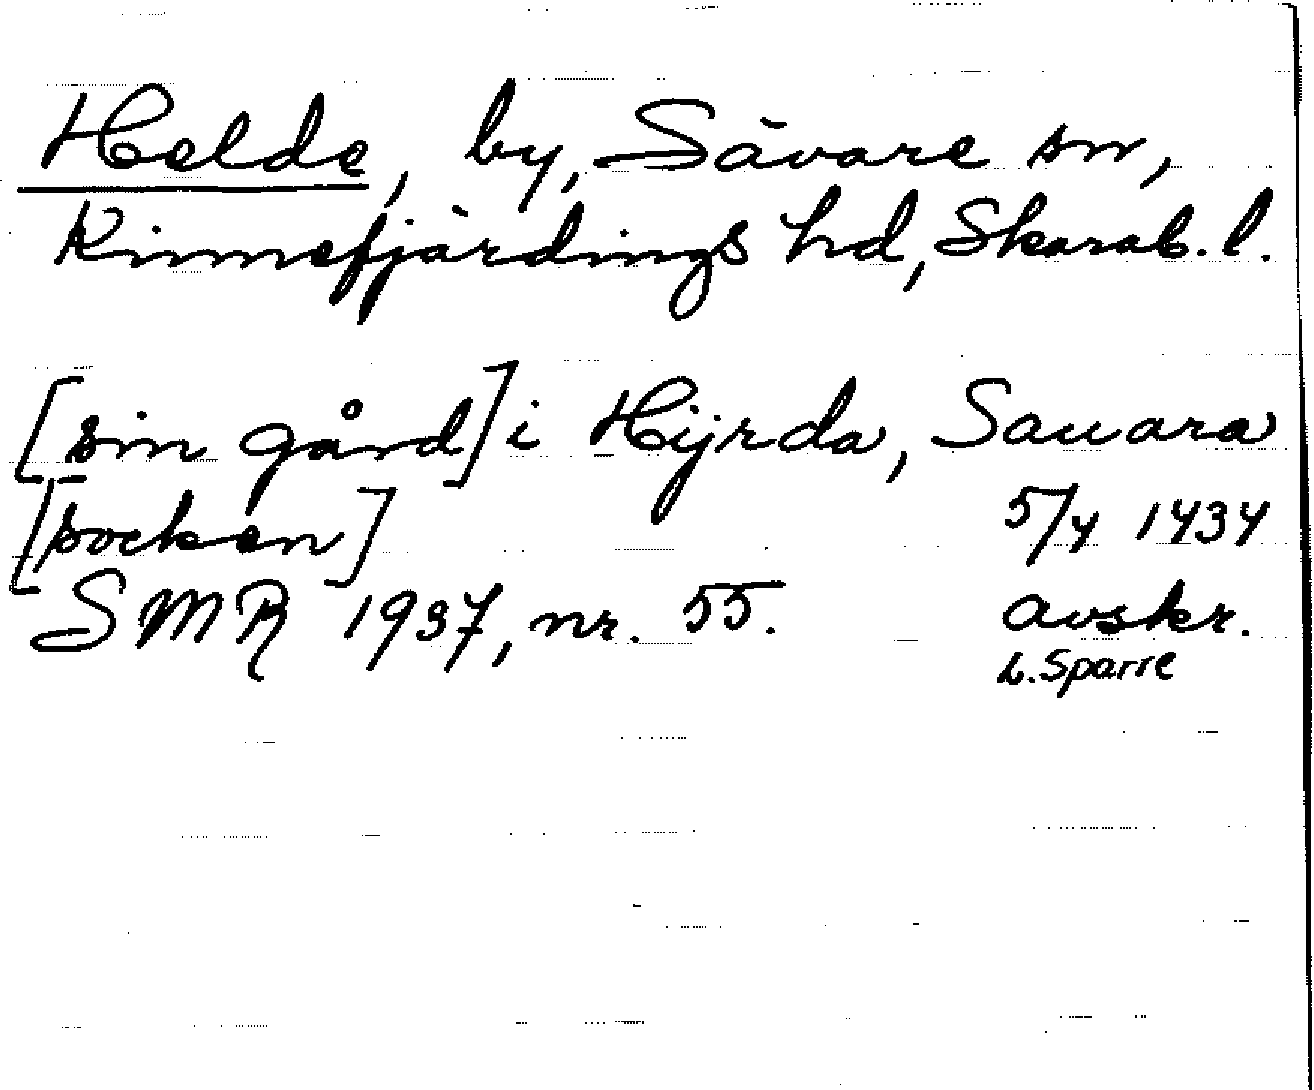 Helde, by, Sävare sn,
Kinnefjärdings hd, Skarab. l.
[sin gård] i Hijrda, Sauara
[socken] 5/4 1434
SMR 1937, nr. 55. avskr.
L. Sparre